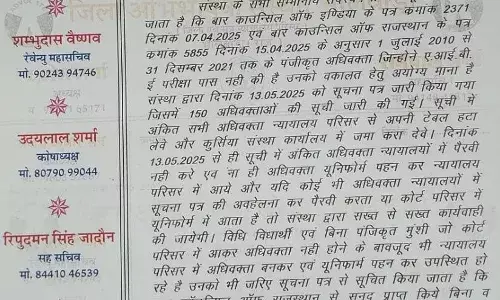 शम्भुदास वैष्णव
रेवेन्यु महासचिव
मो. 90243 94746
उदयलाल शर्मा
कोषाध्यक्ष
मो. 80790 99044
रिपुदमन सिंह जादौन
सह सचिव
मो. 84410 46539
संस्था के सभी सम्मानीय
जाता है कि बार काउन्सिल ऑफ इण्डिया के पत्र कमांक 2371
दिनांक 07.04.2025 एवं बार काउन्सिल ऑफ राजस्थान के पत्र
कमांक 5855 दिनांक 15.04.2025 के अनुसार 1 जुलाई 2010 से
31 दिसम्बर 2021 तक के पंजीकृत अधिवक्ता जिन्होने ए.आई.बी.
ई परीक्षा पास नही की है उनको वकालत हेतु अयोग्य माना है
संस्था द्वारा दिनांक 13.05.2025 को सूचना पत्र जारी किया गया
जिसमें 150 अधिवक्ताओं की सूची जारी की गई। सूची में
अंकित सभी अधिवक्ता न्यायालय परिसर से अपनी टेबल हटा
लेवे और कुर्सिया संस्था कार्यालय में जमा करा देवे। दिनांक
13.05.2025 से ही सूची में अंकित अधिवक्ता न्यायालयों में पैरवी
नही करे एवं ना ही अधिवक्ता यूनिफोर्म पहन कर न्यायालय
परिसर में आये और यदि कोई भी अधिवक्ता न्यायालयों में
सूचना पत्र की अवहेलना कर पैरवी करता या कोर्ट परिसर में
यूनिफोर्म में आता है तो संस्था द्वारा सख्त से सख्त कार्यवाही
की जायेगी। विधि विधार्थी एवं बिना पंजिकृत मुशी जो कोर्ट
परिसर में आकर अधिवक्ता नही होने के बावजूद भी न्यायालय
परिसर में अधिवक्ता बनकर एवं यूनिफार्म पहन कर उपस्थित हो
रहे है उनको भी जरिए सूचना पत्र से सूचित किया जाता है कि
ऑफ राजस्थान से सनद प्राप्त किये बिना व